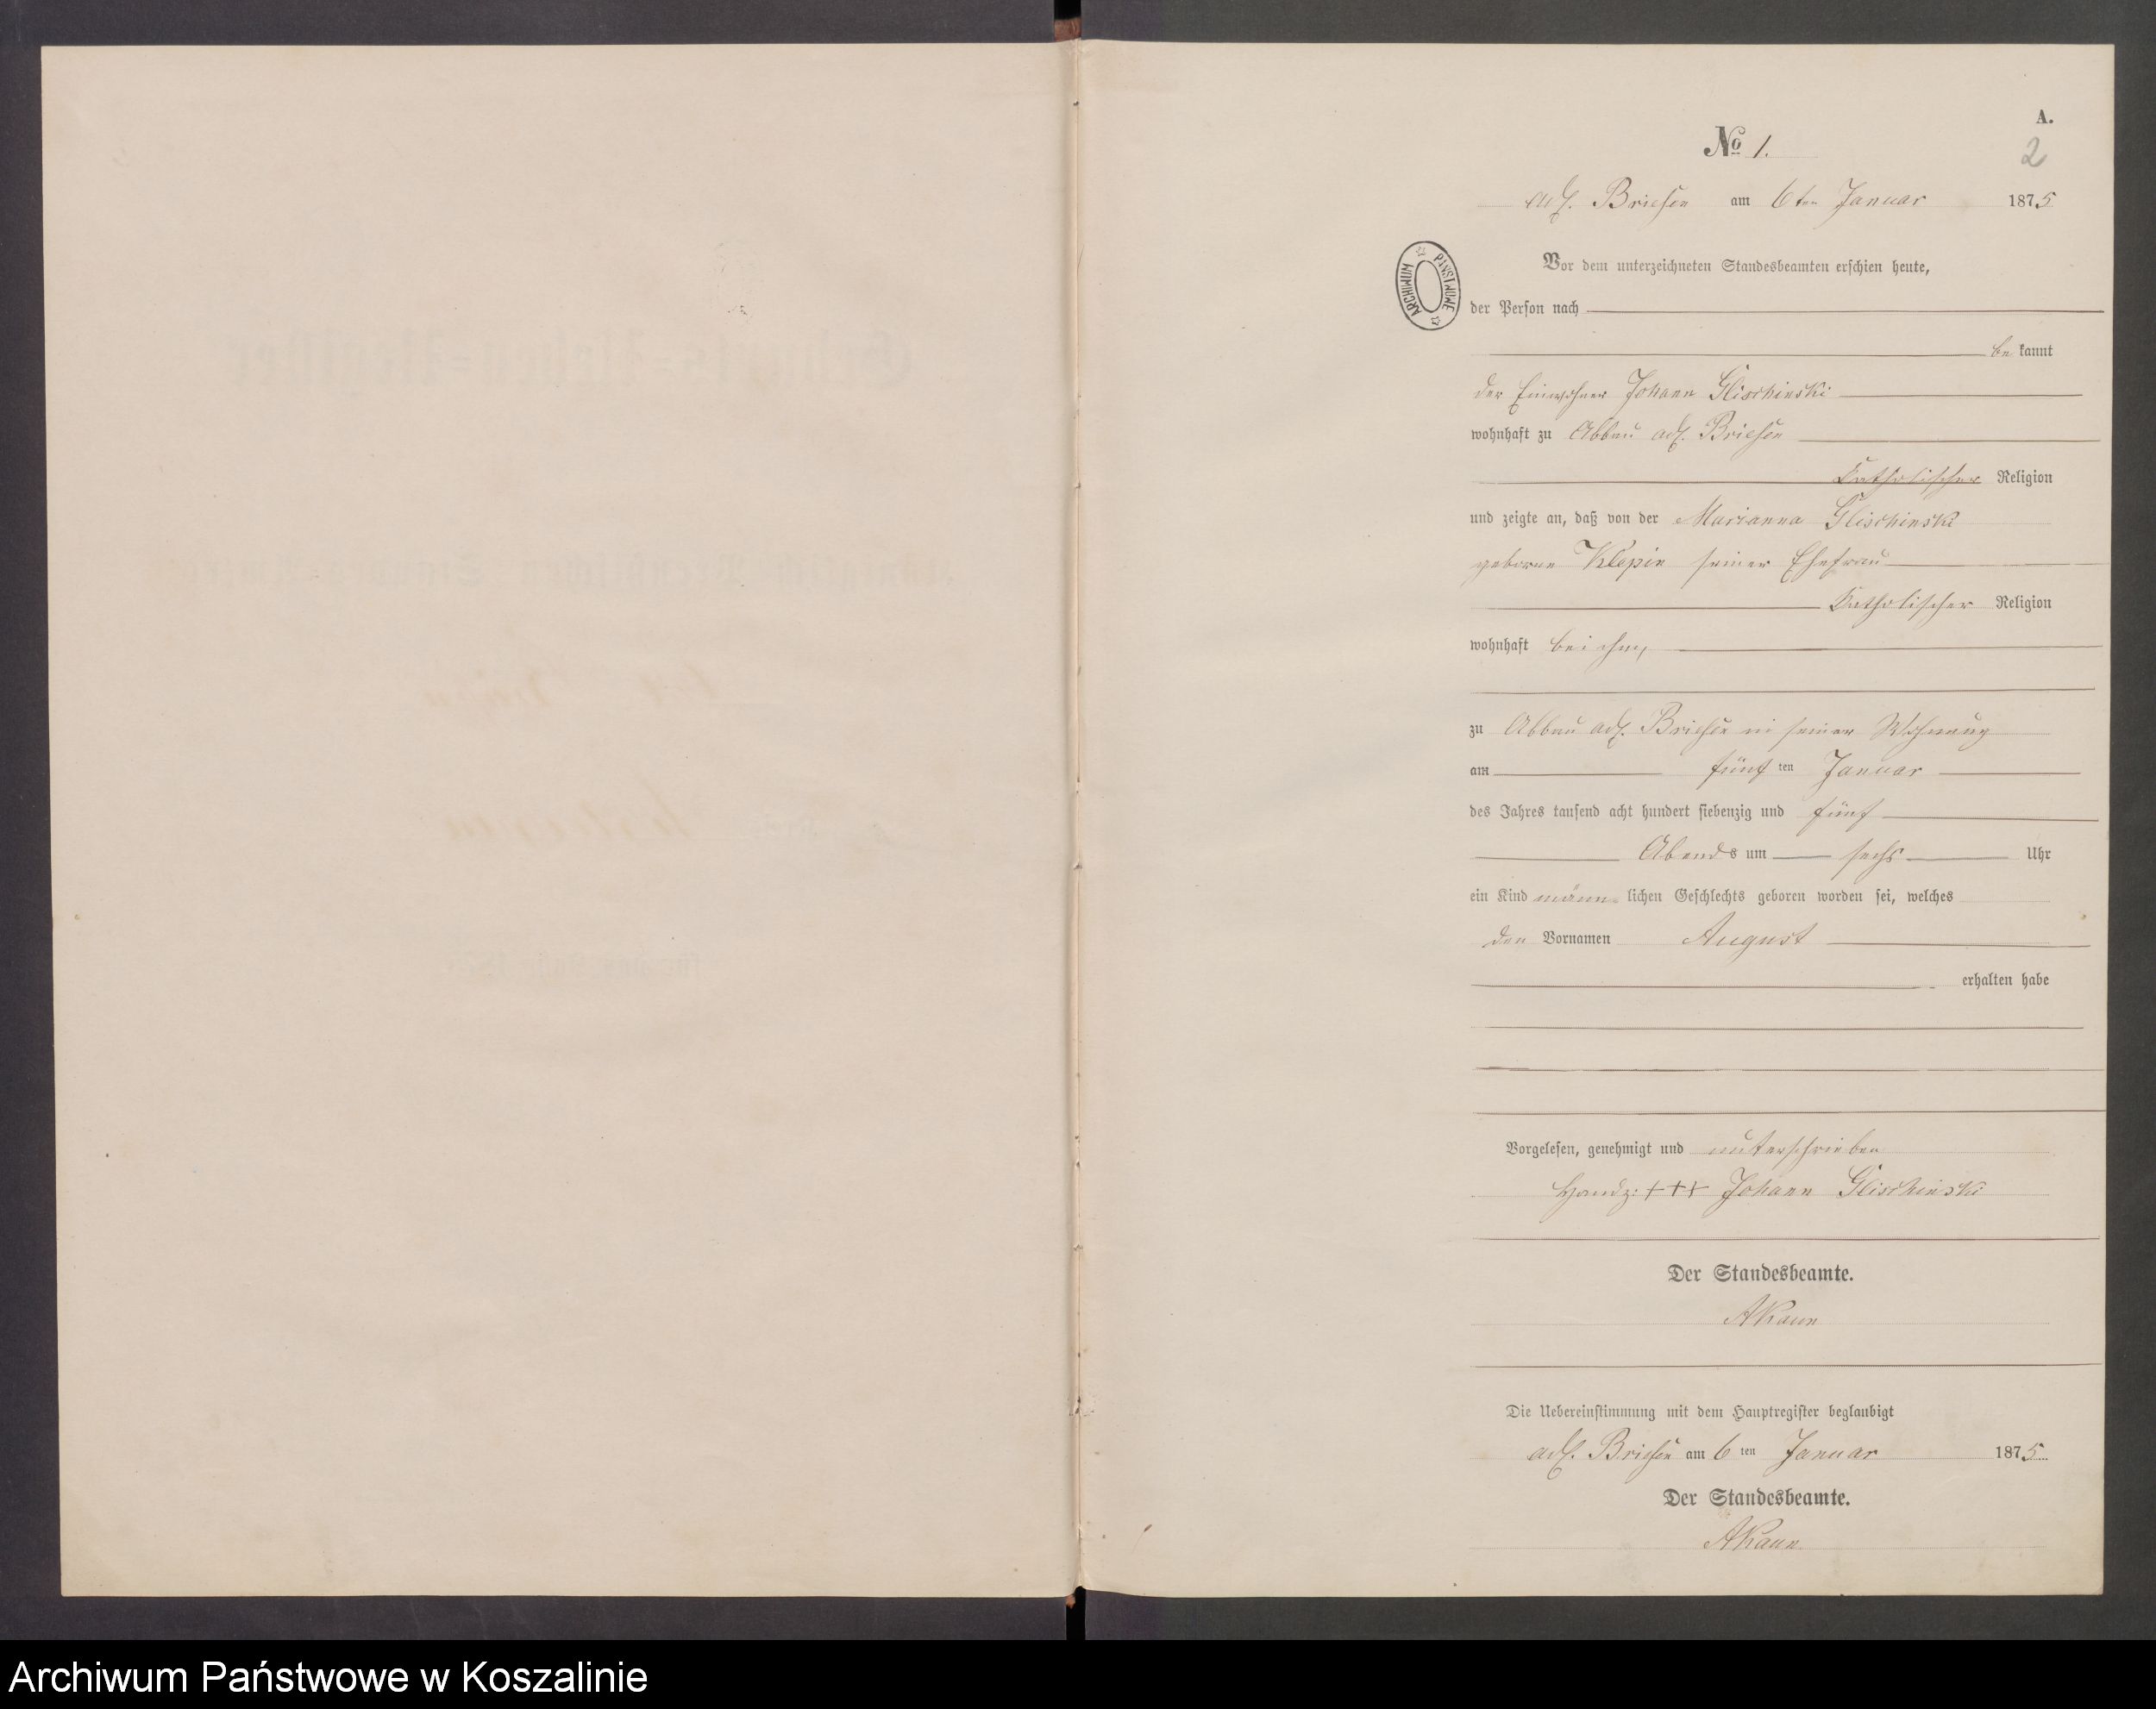 A.
No 1.
2
adl. Briesen am 6ten Januar 1875
Vor dem unterzeichneten Standesbeamten erschien heute,
ARCHIWUM PAŃSTWOWE
der Person nach
be kannt
der Einwohner Johann Glischinski
wohnhaft zu Abbau adl. Briesen
Katholischer Religion
und zeigte an, daß von der Marianna Glischinski
geborne Klepin seiner Ehefrau
Katholischer Religion
wohnhaft bei ihm,
zu Abbau adl. Briesen in seiner Wohnung
am fünf ten Januar
des Jahres tausend acht hundert siebenzig und fünf
Abends um sechs Uhr
ein Kind männ lichen Geschlechts geboren worden sei, welches
den Vornamen August
erhalten habe
Vorgelesen, genehmigt und unterschrieben
Handz: +++ Johann Glischinski
Der Standesbeamte.
Die Uebereinstimmung mit dem Hauptregister beglaubigt
adl. Briesen am 6 ten Januar 1875
Der Standesbeamte.
Archiwum Państwowe w Koszalinie